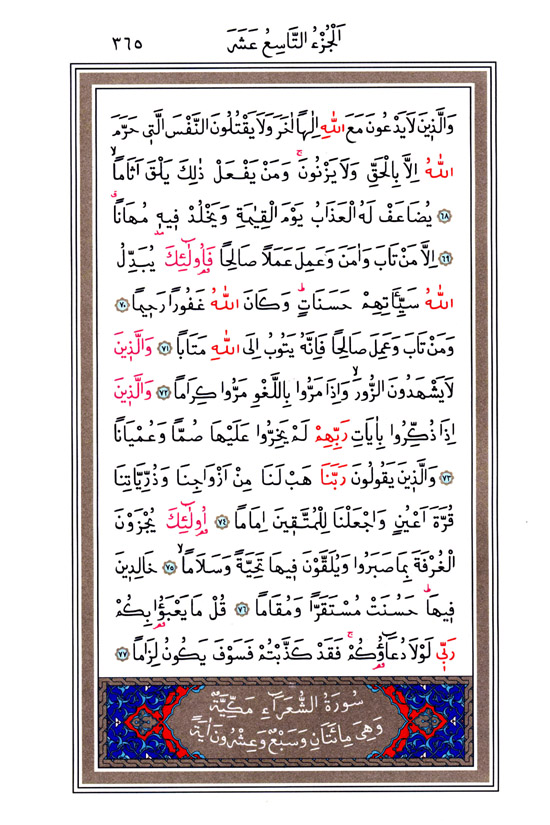 اَلْجُزْءُ التَّاسِعُ عَشَرَ
٣٦٥
وَالَّذٖينَ لَا يَدْعُونَ مَعَ اللّٰهِ اِلٰهًا اٰخَرَ وَلَا يَقْتُلُونَ النَّفْسَ الَّتٖى حَرَّمَ
اللّٰهُ اِلَّا بِالْحَقِّ وَلَا يَزْنُونَۚ وَمَنْ يَفْعَلْ ذٰلِكَ يَلْقَ اَثَامًاۙ
﴿٦٨﴾ يُضَاعَفْ لَهُ الْعَذَابُ يَوْمَ الْقِيٰمَةِ وَيَخْلُدْ فٖيهٖ مُهَانًاۗ
﴿٦٩﴾ اِلَّا مَنْ تَابَ وَاٰمَنَ وَعَمِلَ عَمَلًا صَالِحًا فَاُولٰٓئِكَ يُبَدِّلُ
اللّٰهُ سَيِّـَٔاتِهِمْ حَسَنَاتٍۜ وَكَانَ اللّٰهُ غَفُورًا رَحٖيمًا ﴿٧٠﴾
وَمَنْ تَابَ وَعَمِلَ صَالِحًا فَاِنَّهُ يَتُوبُ اِلَى اللّٰهِ مَتَابًا ﴿٧١﴾ وَالَّذٖينَ
لَا يَشْهَدُونَ الزُّورَۙ وَاِذَا مَرُّوا بِاللَّغْوِ مَرُّوا كِرَامًا ﴿٧٢﴾ وَالَّذٖينَ
اِذَا ذُكِّرُوا بِاٰيَاتِ رَبِّهِمْ لَمْ يَخِرُّوا عَلَيْهَا صُمًّا وَعُمْيَانًا
﴿٧٣﴾ وَالَّذٖينَ يَقُولُونَ رَبَّنَا هَبْ لَنَا مِنْ اَزْوَاجِنَا وَذُرِّيَّاتِنَا
قُرَّةَ اَعْيُنٍ وَاجْعَلْنَا لِلْمُتَّقٖينَ اِمَامًا ﴿٧٤﴾ اُولٰٓئِكَ يُجْزَوْنَ
الْغُرْفَةَ بِمَا صَبَرُوا وَيُلَقَّوْنَ فٖيهَا تَحِيَّةً وَسَلَامًاۙ ﴿٧٥﴾ خَالِدٖينَ
فٖيهَاۜ حَسُنَتْ مُسْتَقَرًّا وَمُقَامًا ﴿٧٦﴾ قُلْ مَا يَعْبَؤُا بِكُمْ
رَبّٖى لَوْلَا دُعَٓاؤُكُمْۚ فَقَدْ كَذَّبْتُمْ فَسَوْفَ يَكُونُ لِزَامًا ﴿٧٧﴾
سُورَةُ الشُّعَرَاءِ مَكِّيَّةٌ
وَهِيَ مِائَتَانِ وَسَبْعٌ وَعِشْرُونَ اٰيَةً